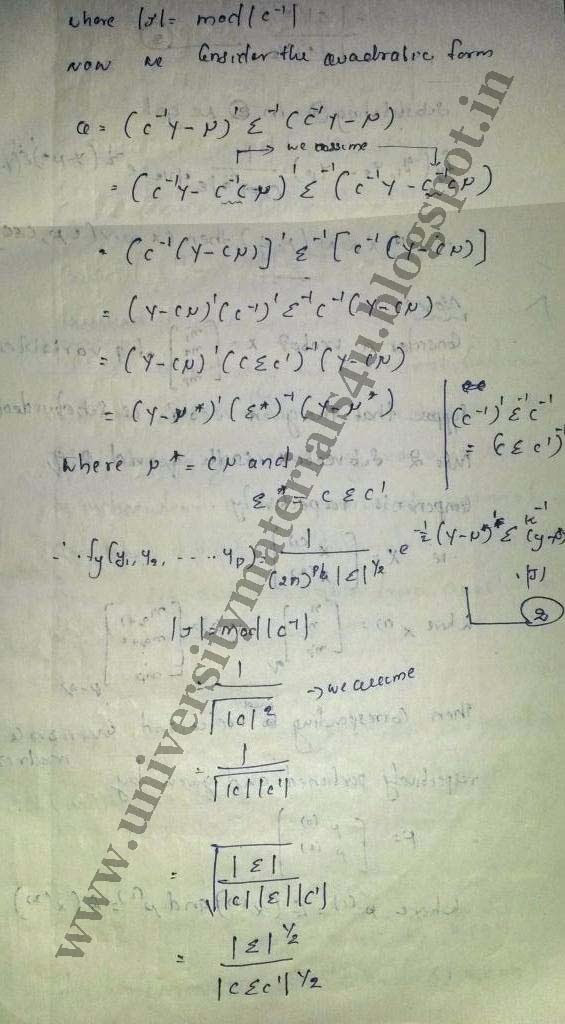 where |J| = mod |c⁻¹|
now we Consider the quadratic form
Q = (c⁻¹Y - μ)' Σ⁻¹ (c⁻¹Y - μ)
→ we assume
= (c⁻¹Y - c⁻¹cμ)' Σ⁻¹ (c⁻¹Y - c⁻¹cμ)
= (c⁻¹(Y - cμ)]' Σ⁻¹ [c⁻¹(Y - cμ)]
= (Y - cμ)' (c⁻¹)' Σ⁻¹ c⁻¹ (Y - cμ)
= (Y - cμ)' (cΣc')⁻¹ (Y - cμ)
= (Y - μ*)' (Σ*)⁻¹ (Y - μ*)
(c⁻¹)' Σ⁻¹ c⁻¹
= (cΣc')⁻¹
where μ* = cμ and
Σ* = cΣc'
∴ fy(y₁, y₂, ..... yp) = 1 / (2π)^p/2 |Σ|^1/2 · e^-1/2 (Y-μ*)' Σ*⁻¹ (y-μ*)
·|J|
②
|J| = mod |c⁻¹|
= 1 / √|c|² → we assume
= 1 / √|c||c'|
= √|Σ| / |c||Σ||c'|
= |Σ|^1/2 / |cΣc'|^1/2
www.universitymaterials4u.blogspot.in